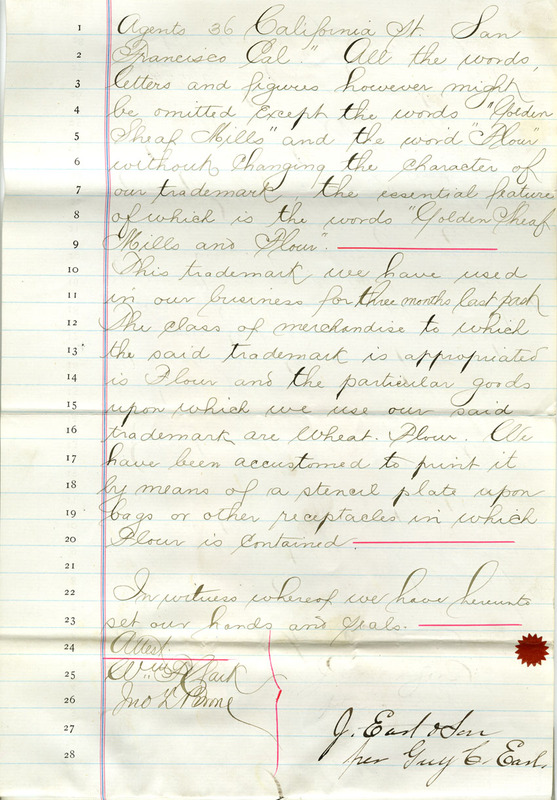 1 Agents 36 California St. San
2 Francisco Cal." All the words,
3 letters and figures however might
4 be omitted except the words "Golden
5 Sheaf Mills" and the word "Flour"
6 without changing the character of
7 our trademark, the essential feature
8 of which is the words "Golden Sheaf
9 Mills and Flour".
10 This trademark we have used
11 in our business for three months last past
12 The class of merchandise to which
13 the said trademark is appropriated
14 is Flour and the particular goods
15 upon which we use our said
16 trademark are Wheat. Flour. We
17 have been accustomed to print it
18 by means of a stencil plate upon
19 bags or other receptacles in which
20 Flour is contained.
21
22 In witness whereof we have hereunto
23 set our hands and seals.
24 Attest
25 Wm
26 Jno L.
27 J. Earl & Son
28 per Guy C. Earl.